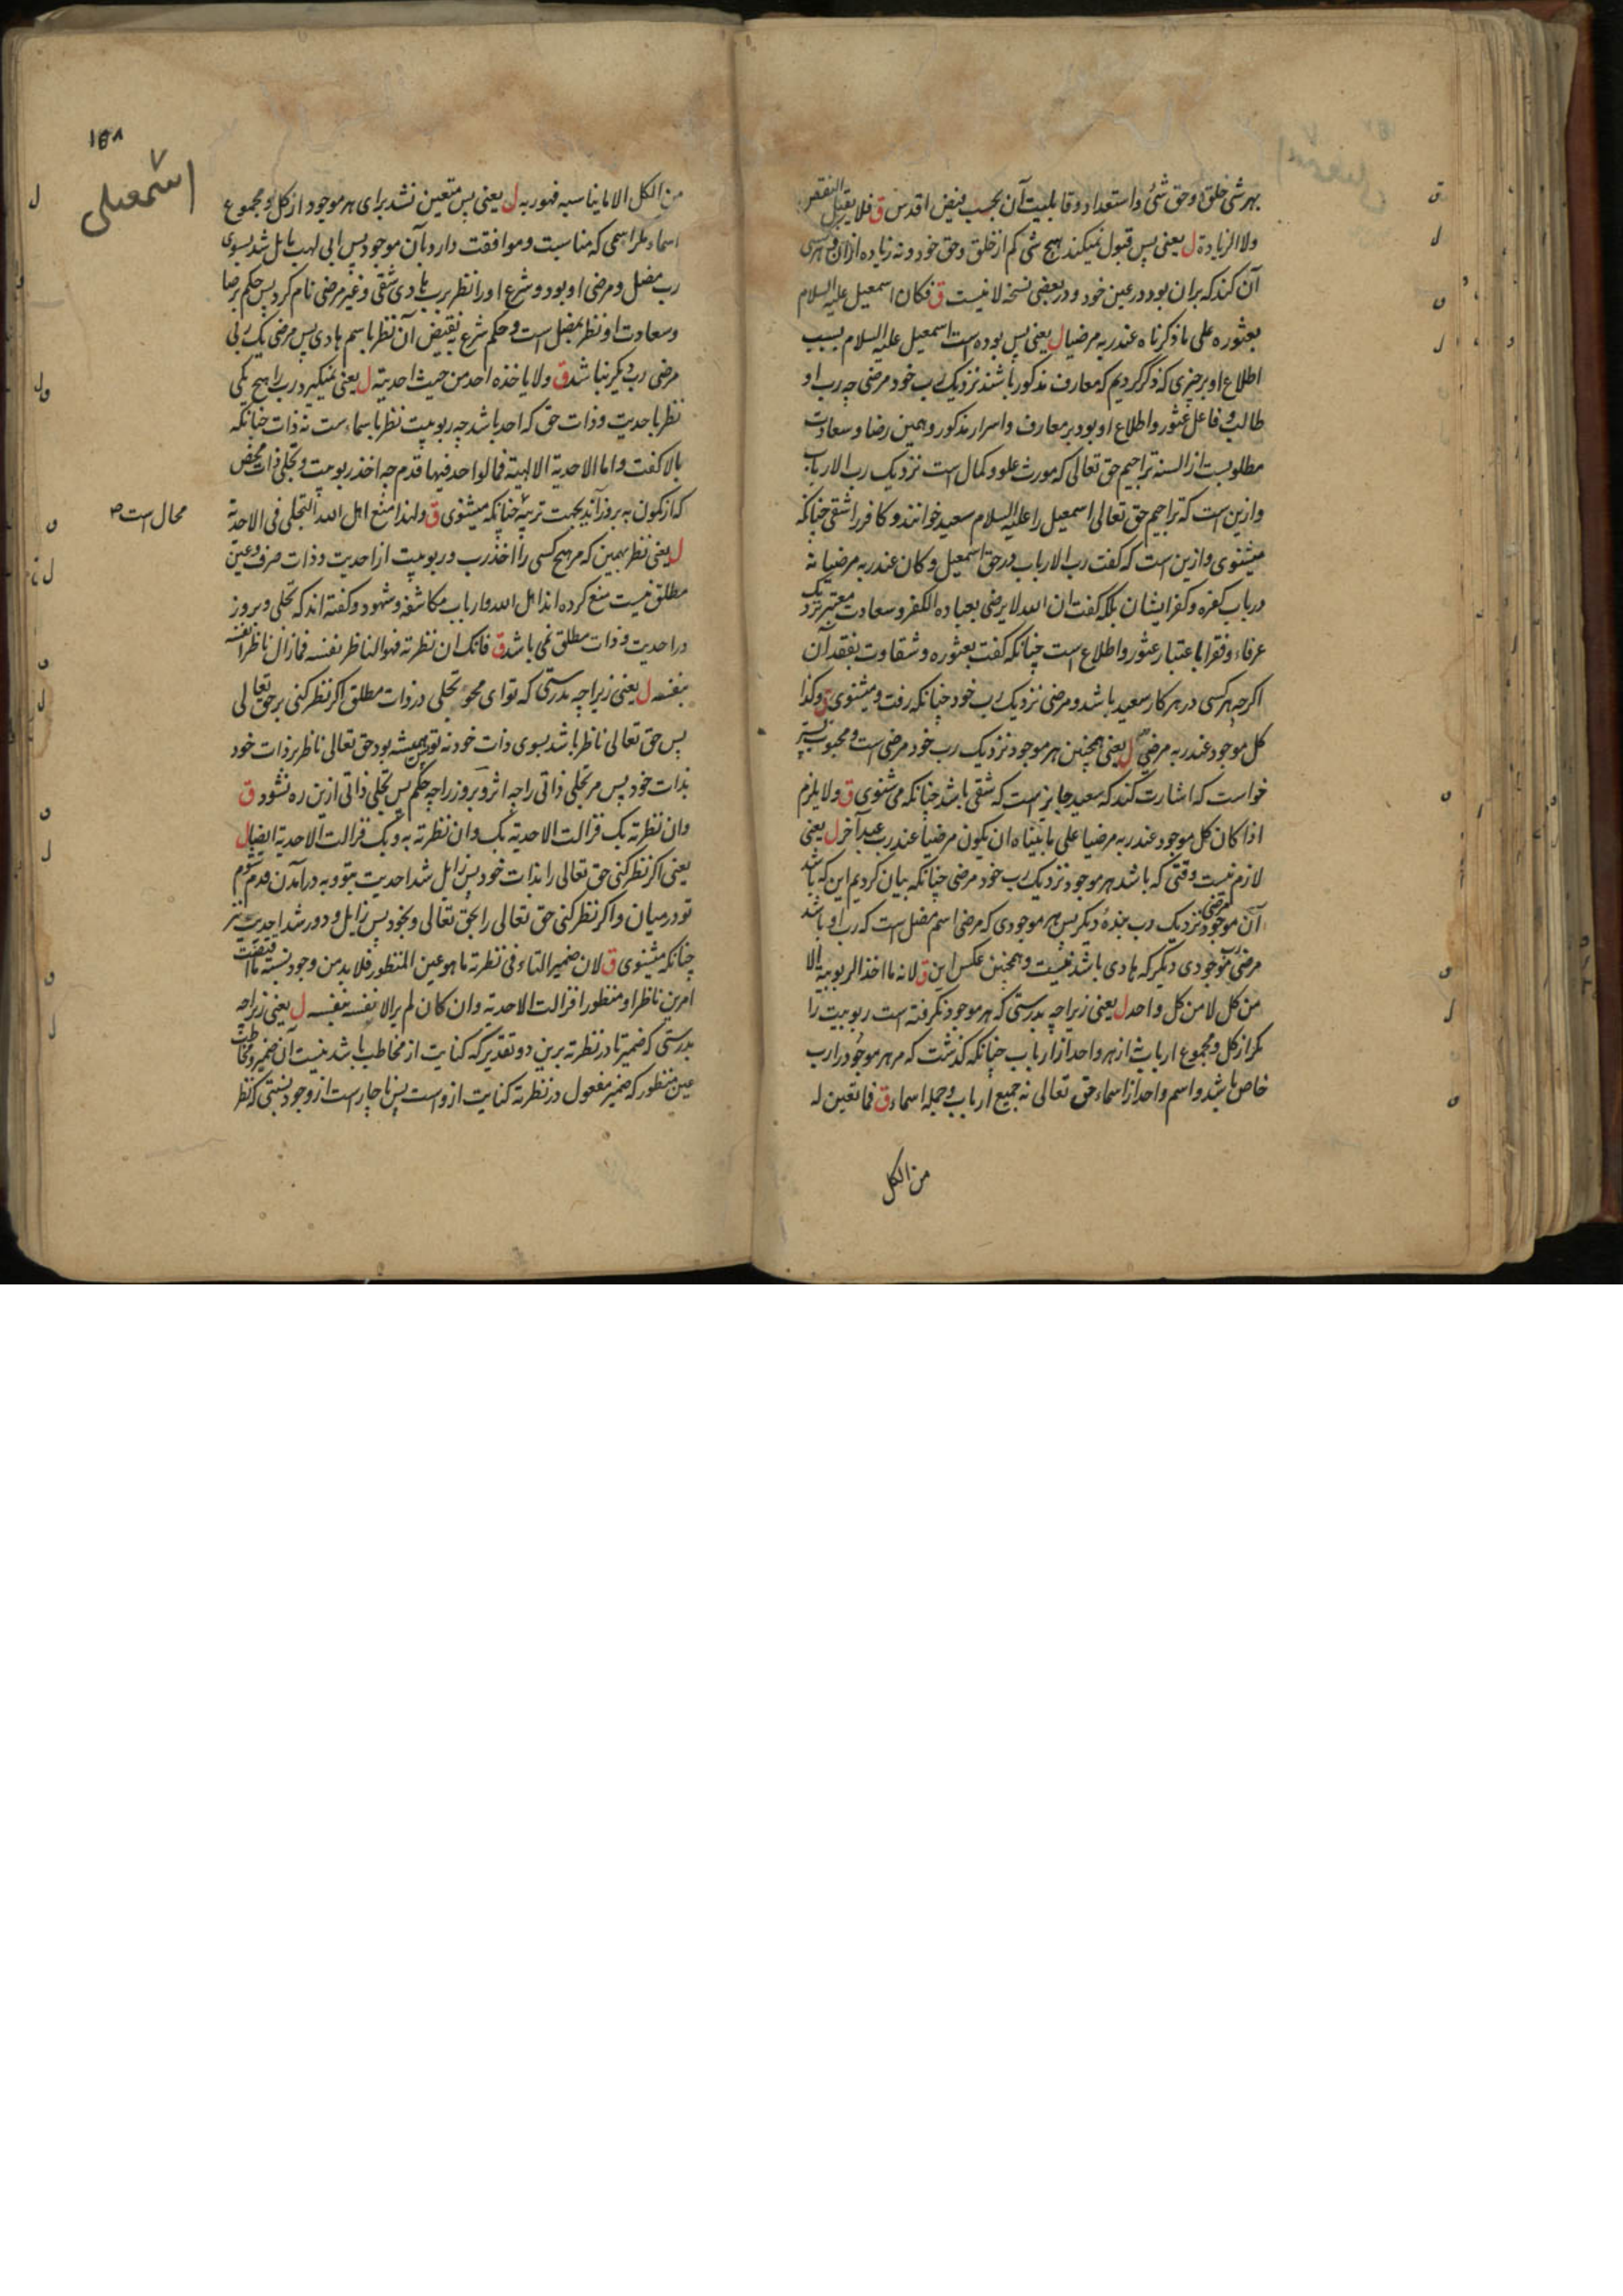 بهر شی خلق او حق شئ و استعداد و قابلیت آن بحسب فیض اقدس ق فلا یقبل النقص
ولا الزیادة ل یعنی پس قبول نمیکند هیچ شی کم از خلق و حق خود و نه زیاده ازان و هر شی
آن کند که بران بود در عین خود و در بعضی نسخه لا نیست ق فکان اسمعیل علیه السلام
بعثوره علی ما ذکرناه عند ربه مرضیا ل یعنی پس بوده است اسمعیل علیه السلام بسبب
اطلاع او بر چیزی که ذکر کردیم که معارف مذکور باشند نزدیک رب خود مرضی چه رب او
طالب و فاعل عثور و اطلاع او بود بر معارف و اسرار مذکور و همین رضا و سعادت
مطلوبست از السنه تراجیم حق تعالی که مورث علو و کمال است نزدیک رب الارباب
و ازین است که تراجیم حق تعالی اسمعیل را علیه السلام سعید خوانند و کافر را شقی چنانکه
میشنوی و ازین است که گفت رب الارباب در حق اسمعیل و کان عند ربه مرضیا نه
در باب کفره و کفر ایشان بلکه گفت ان الله لا یرضی بعباده الکفر و سعادت معتبر نزدیک
عرفاء و فقرا باعتبار عثور و اطلاع است چنانکه گفت بعثوره و شقاوت بفقد آن
اکرچه هر کسی در هر کار سعید باشد و مرضی نزدیک رب خود چنانکه رفت و میشنوی ق و کذا
کل موجود عند ربه مرضی ل یعنی همچنین هر موجود نزدیک رب خود مرضی است و محبوب
خواست که اشارت کند که سعید جایز است که شقی باشد چنانکه می شنوی ق ولا یلزم
اذا کان کل موجود عند ربه مرضیا علی ما بیناه ان یکون مرضیا عند رب عبد آخر ل یعنی
لازم نیست وقتی که باشد هر موجود نزدیک رب خود مرضی چنانکه بیان کردیم این که باشد
آن موجود مرضی نزدیک رب بندهٔ دیگر پس هر موجودی که مرضی اسم مضل است که رب او باشد
مرضی رب موجودی دیگر که هادی باشد نیست و همچنین عکس این ق لانه ما اخذ الربوبیة الا
من کل لا من کل واحد ل یعنی زیرا چه بدرستی که هر موجود نگرفته است ربوبیت را
مکر از کل و مجموع ارباب نه از هر واحد از ارباب چنانکه گذشت که مر هر موجود را رب
خاص باشد و اسم واحد از اسماء حق تعالی نه جمیع ارباب و جمله اسماء ق فما تعین له
من الکل
۱۵۸
اسمعیلی
من الکل الا ما یناسبه فهو ربه ل یعنی پس متعین نشد برای هر موجود از کل و مجموع
اسماء مکر اسمی که مناسبت و موافقت دارد بآن موجود پس ابی لهب مایل شد بسوی
رب مضل و مرضی او بود و شرع او را نظر برب هادی شقی و غیر مرضی نام کرد پس حکم برضا
و سعادت او نظر بمضل است و حکم شرع بنقیض آن نظر باسم هادی پس مرضی یک ربی
مرضی رب دیگر نباشد ق ولا یاخذه احد من حیث احدیته ل یعنی نمیگیرد رب را هیچ یکی
نظر باحدیت و ذات حق که احد باشد چه ربوبیت نظر باسماءست نه ذات چنانکه
بالا گفت و اما الاحدیة الالهیة فما لواحد فیها قدم چه اخذ ربوبیت و تجلی ذات محض
که از کمون به بروز آید بجهت تربیه چنانکه میشنوی ق و لهذا منع اهل الله التجلی فی الاحدیة
محال است ص
ل یعنی نظر بهمین که مر هیچ کسی را اخذ رب و ربوبیت از احدیت و ذات صرف و عین
مطلق نیست منع کرده اند اهل الله و ارباب مکاشفه و شهود و گفته اند که تجلی و بروز
در احدیت و ذات مطلق نمی باشد ق فانک ان نظرته فهو الناظر نفسه فما زال ناظرا نفسه
بنفسه ل یعنی زیرا چه بدرستی که تو ای محو تجلی در ذات مطلق اکر نظر کنی بر حق تعالی
پس حق تعالی ناظر باشد بسوی ذات خود نه تو پس همیشه بود حق تعالی ناظر بر ذات خود
بذات خود پس مر تجلی ذاتی را چه اثر و بروز را چه حکم پس تجلی ذاتی ازین ره نشود ق
وان نظرته بک فزالت الاحدیة بک وان نظرته به و بک فزالت الاحدیة ایضا ل
یعنی اکر نظر کنی حق تعالی را بذات خود پس زایل شد احدیت بتو و به درآمدن قدم شوم
تو در میان و اکر نظر کنی حق تعالی را بحق تعالی و بخود پس زایل و دور شد احدیت نیز
چنانکه میشنوی ق لان ضمیر التاء فی نظرته ما هو عین المنظور فلا بد من وجود نسبة ما اقتضت
امرین ناظرا و منظورا فزالت الاحدیة وان کان لم یر الا نفسه بنفسه ل یعنی زیرا چه
بدرستی که ضمیر تا در نظرته برین دو تقدیر که کنایت از مخاطب باشد نیست آن ضمیر و مخاطب
عین منظور که ضمیر مفعول در نظرته کنایت ازوست پس ناچار است از وجود نسبتی که نظر